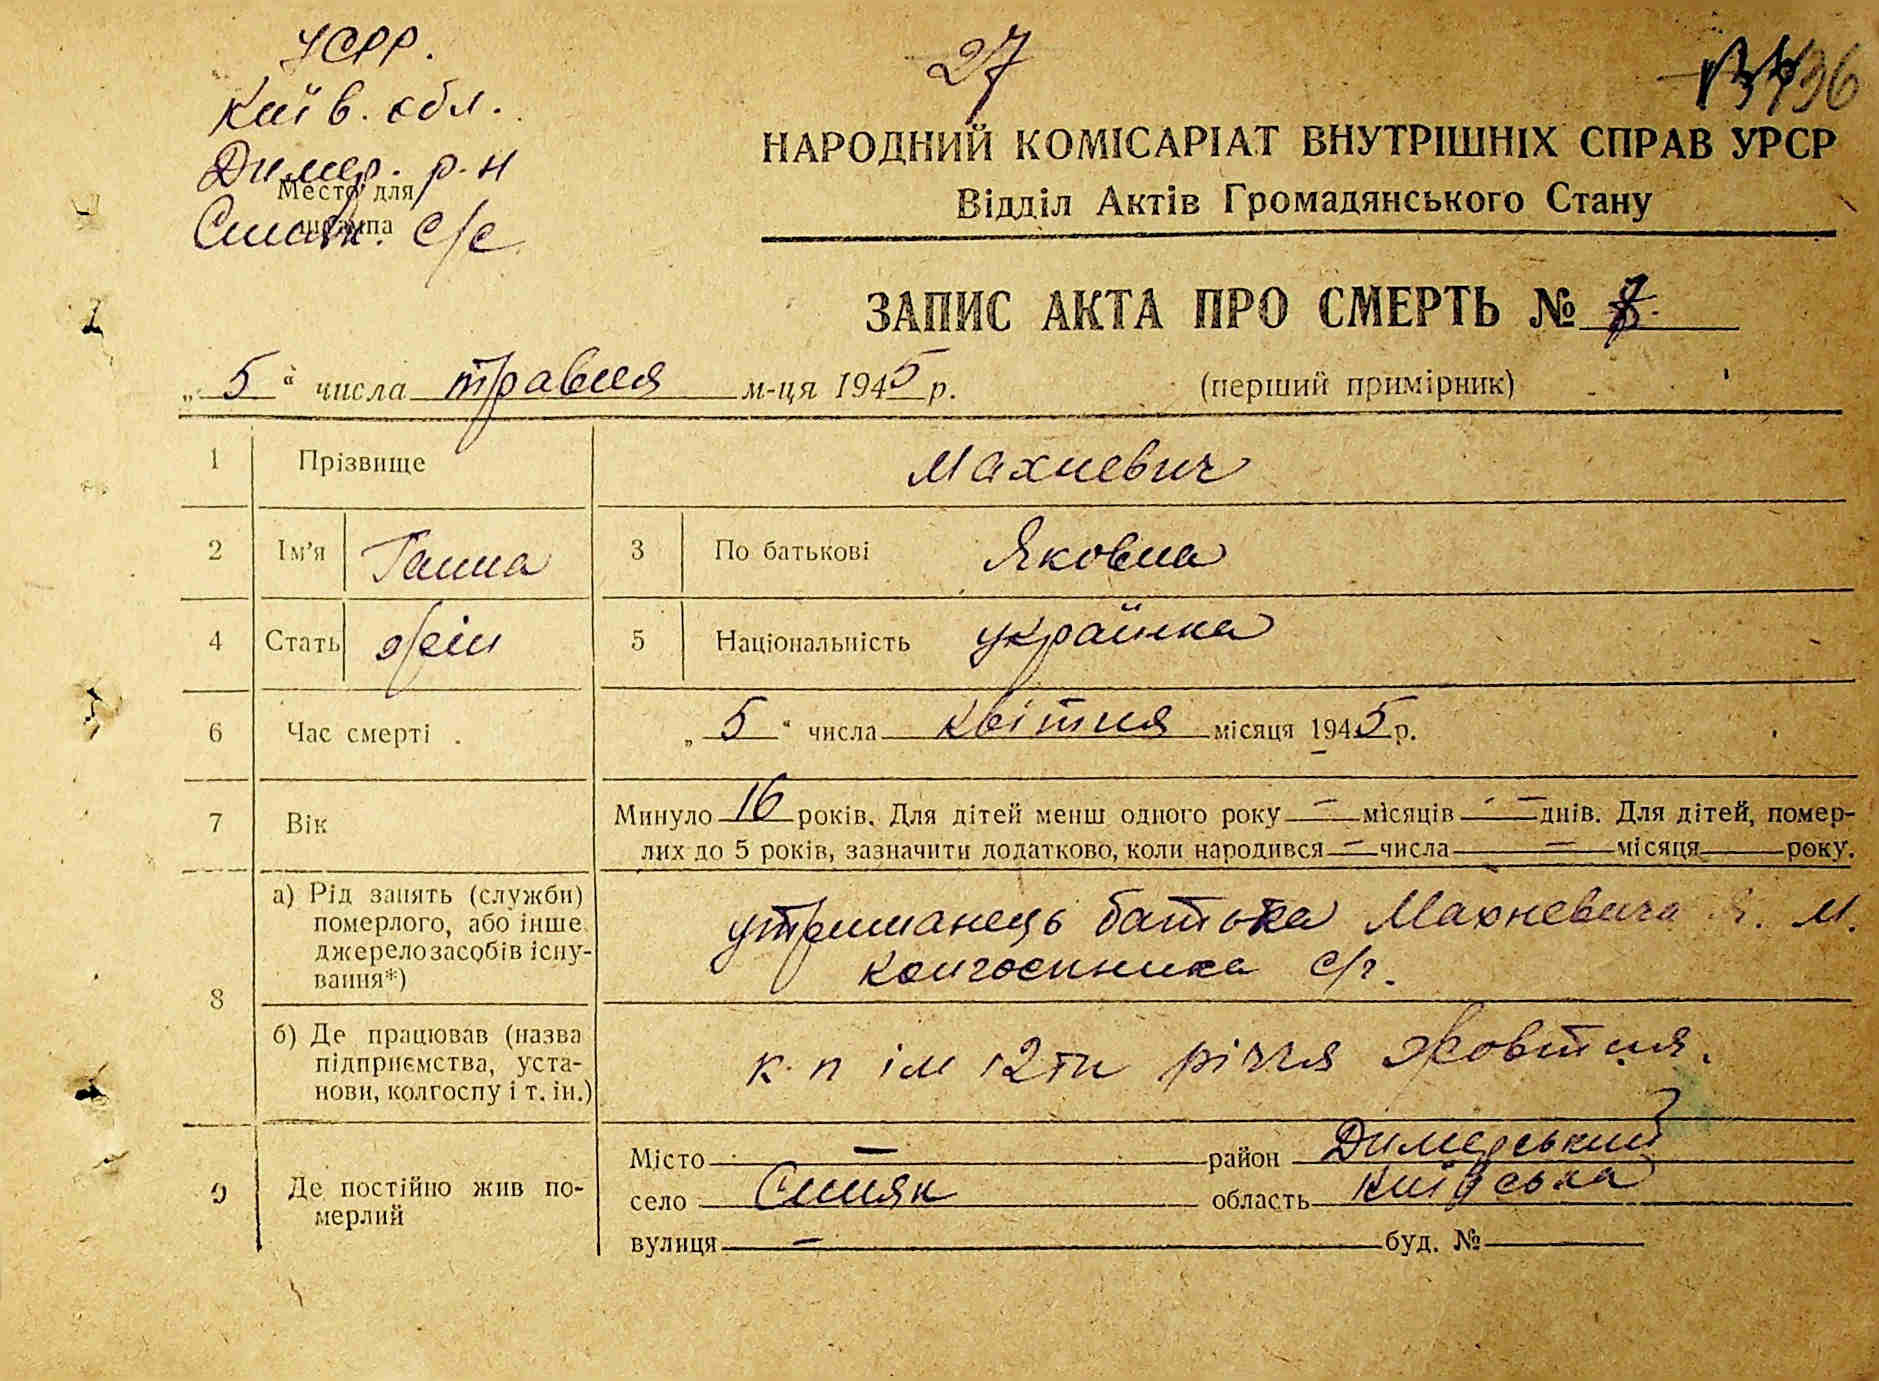 УСРР.
Київ. обл.
Димер. р-н
Место для
штампа
Синяк. с/с
27
НАРОДНИЙ КОМІСАРІАТ ВНУТРІШНІХ СПРАВ УРСР
Відділ Актів Громадянського Стану
ЗАПИС АКТА ПРО СМЕРТЬ № 7
„5“ числа травня м-ця 1945 р. (перший примірник)
1 Прізвище Махневич
2 Ім'я Ганна 3 По батькові Яковна
4 Стать жін 5 Національність українка
6 Час смерті „5“ числа квітня місяця 1945 р.
7 Вік Минуло 16 років. Для дітей менш одного року — місяців — днів. Для дітей, помер-
лих до 5 років, зазначити додатково, коли народився — числа — місяця року.
8 а) Рід занять (служби)
померлого, або інше
джерело засобів існу-
вання*)
утриманець батька Махневича Я. М.
колгоспника с/г.
б) Де працював (назва
підприємства, уста-
нови, колгоспу і т. ін.)
к-п ім 12ти річчя Жовтня.
9 Де постійно жив по-
мерлий
Місто — район Димерський
село Синяк область Київська
вулиця — буд. №